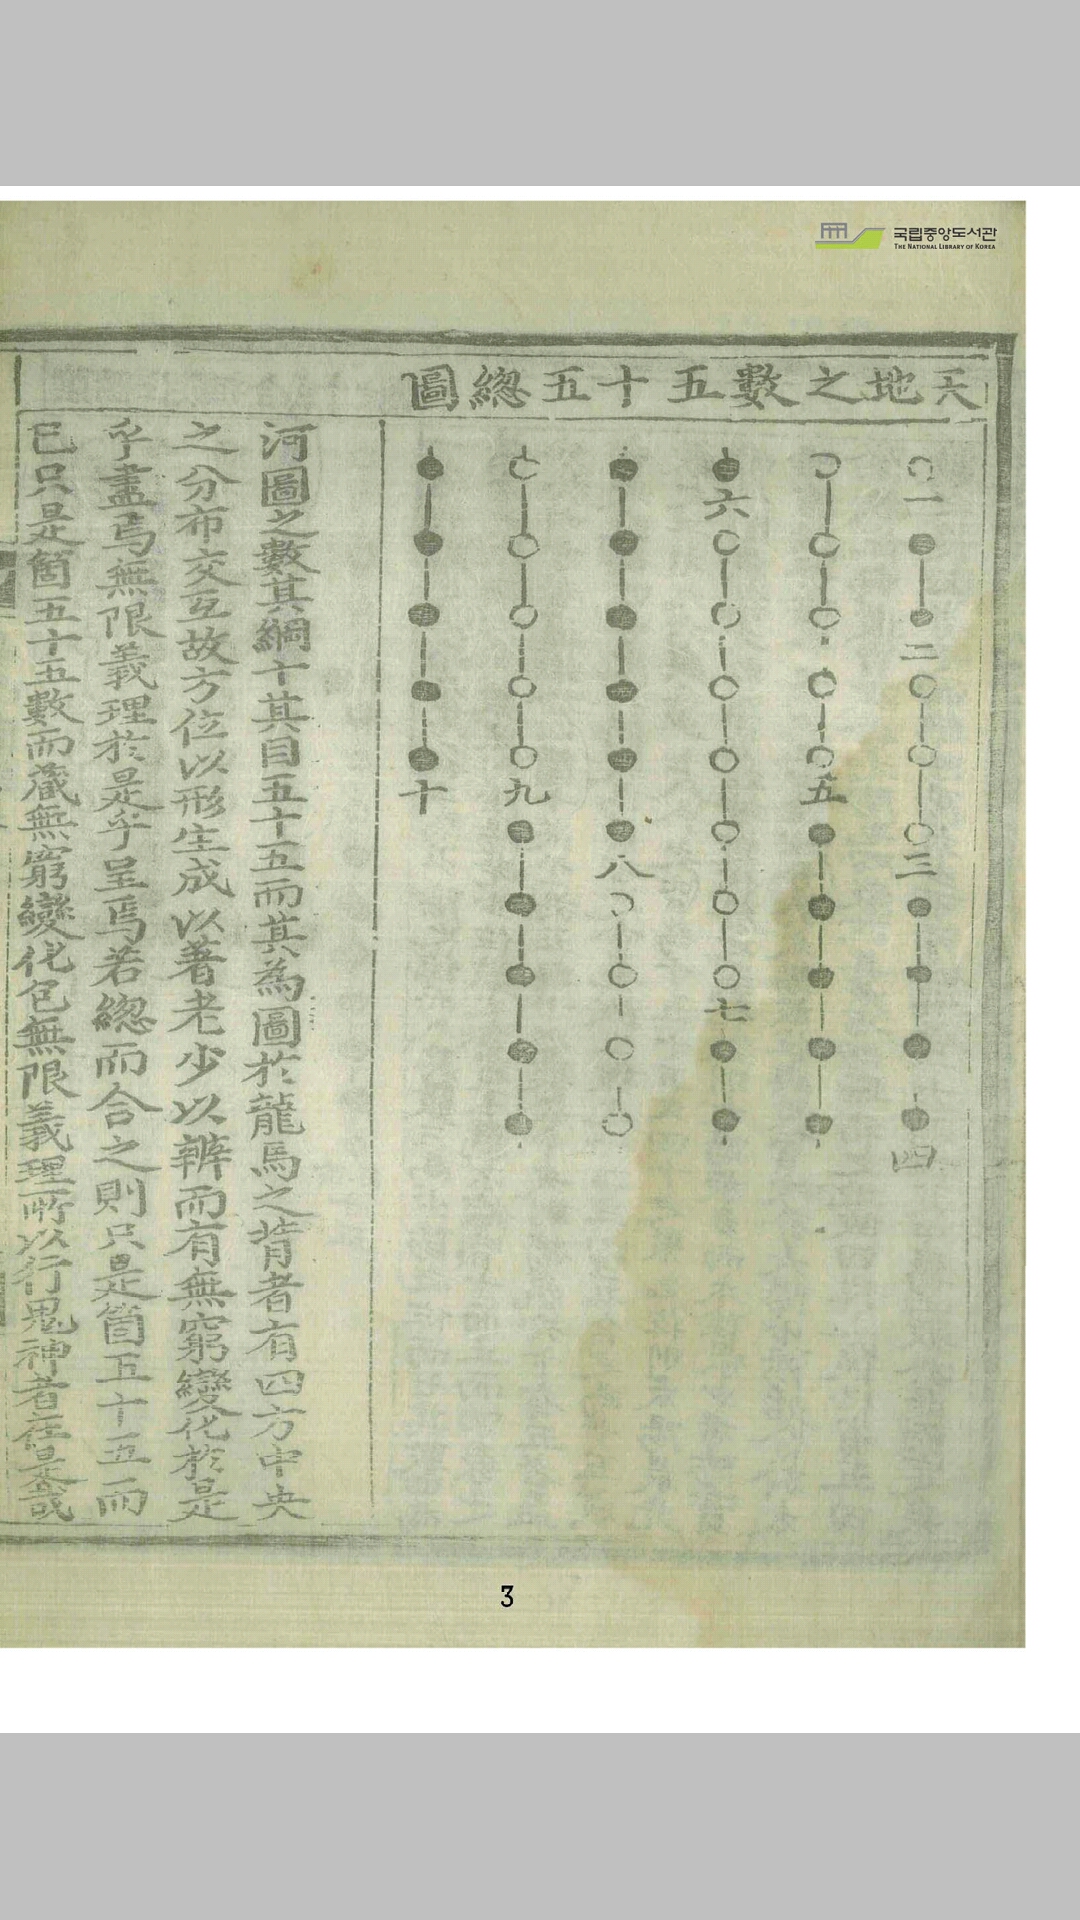 국립중앙도서관
THE NATIONAL LIBRARY OF KOREA
天地之數五十五總圖
一
二
三
四
五
六
七
八
九
十
河圖之數其綱十其目五十五而其為圖於龍馬之背者有四方中央
之分布交互故方位以形生成以著老少以辨而有無窮變化於是
乎盡焉無限義理於是乎呈焉若總而合之則只是箇五十五而
已只是箇五十五數而藏無窮變化包無限義理所以行鬼神者在是哉
3